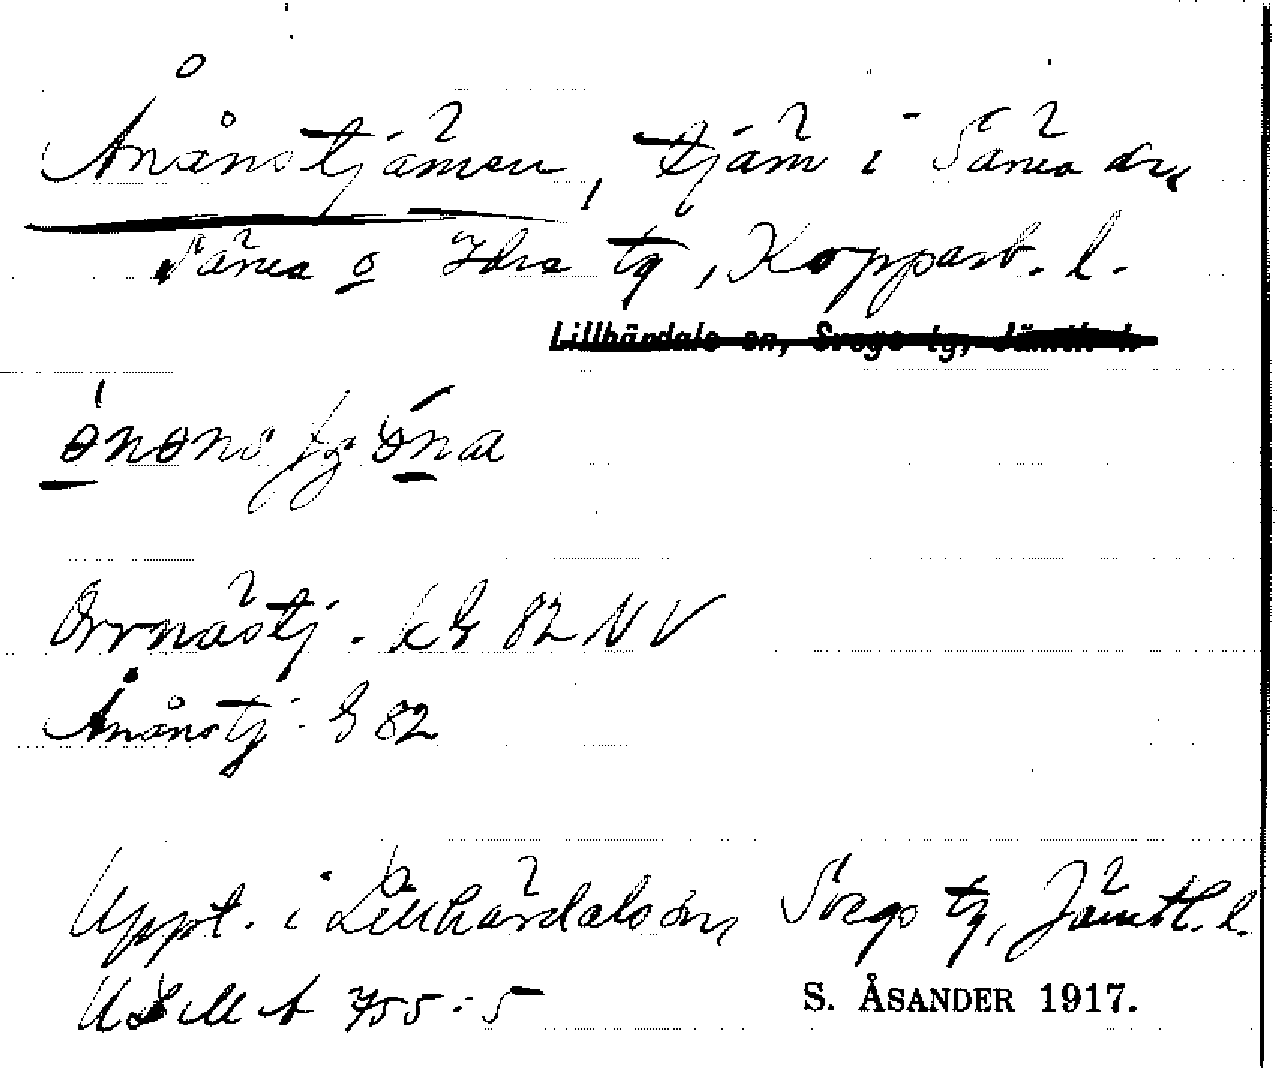 Ånånstjärnen, tjärn i Särna sn,
Särna o Idre tg, Kopparb. l.
Lillhärdals sn, Svegs tg, Jämtl. l.
Orrnästj. kG 82 NV
Ånånstj. G 82
Uppt. i Lillhärdals sn, Svegs tg, Jämtl. l.
ULMA 755:5
S. ÅSANDER 1917.